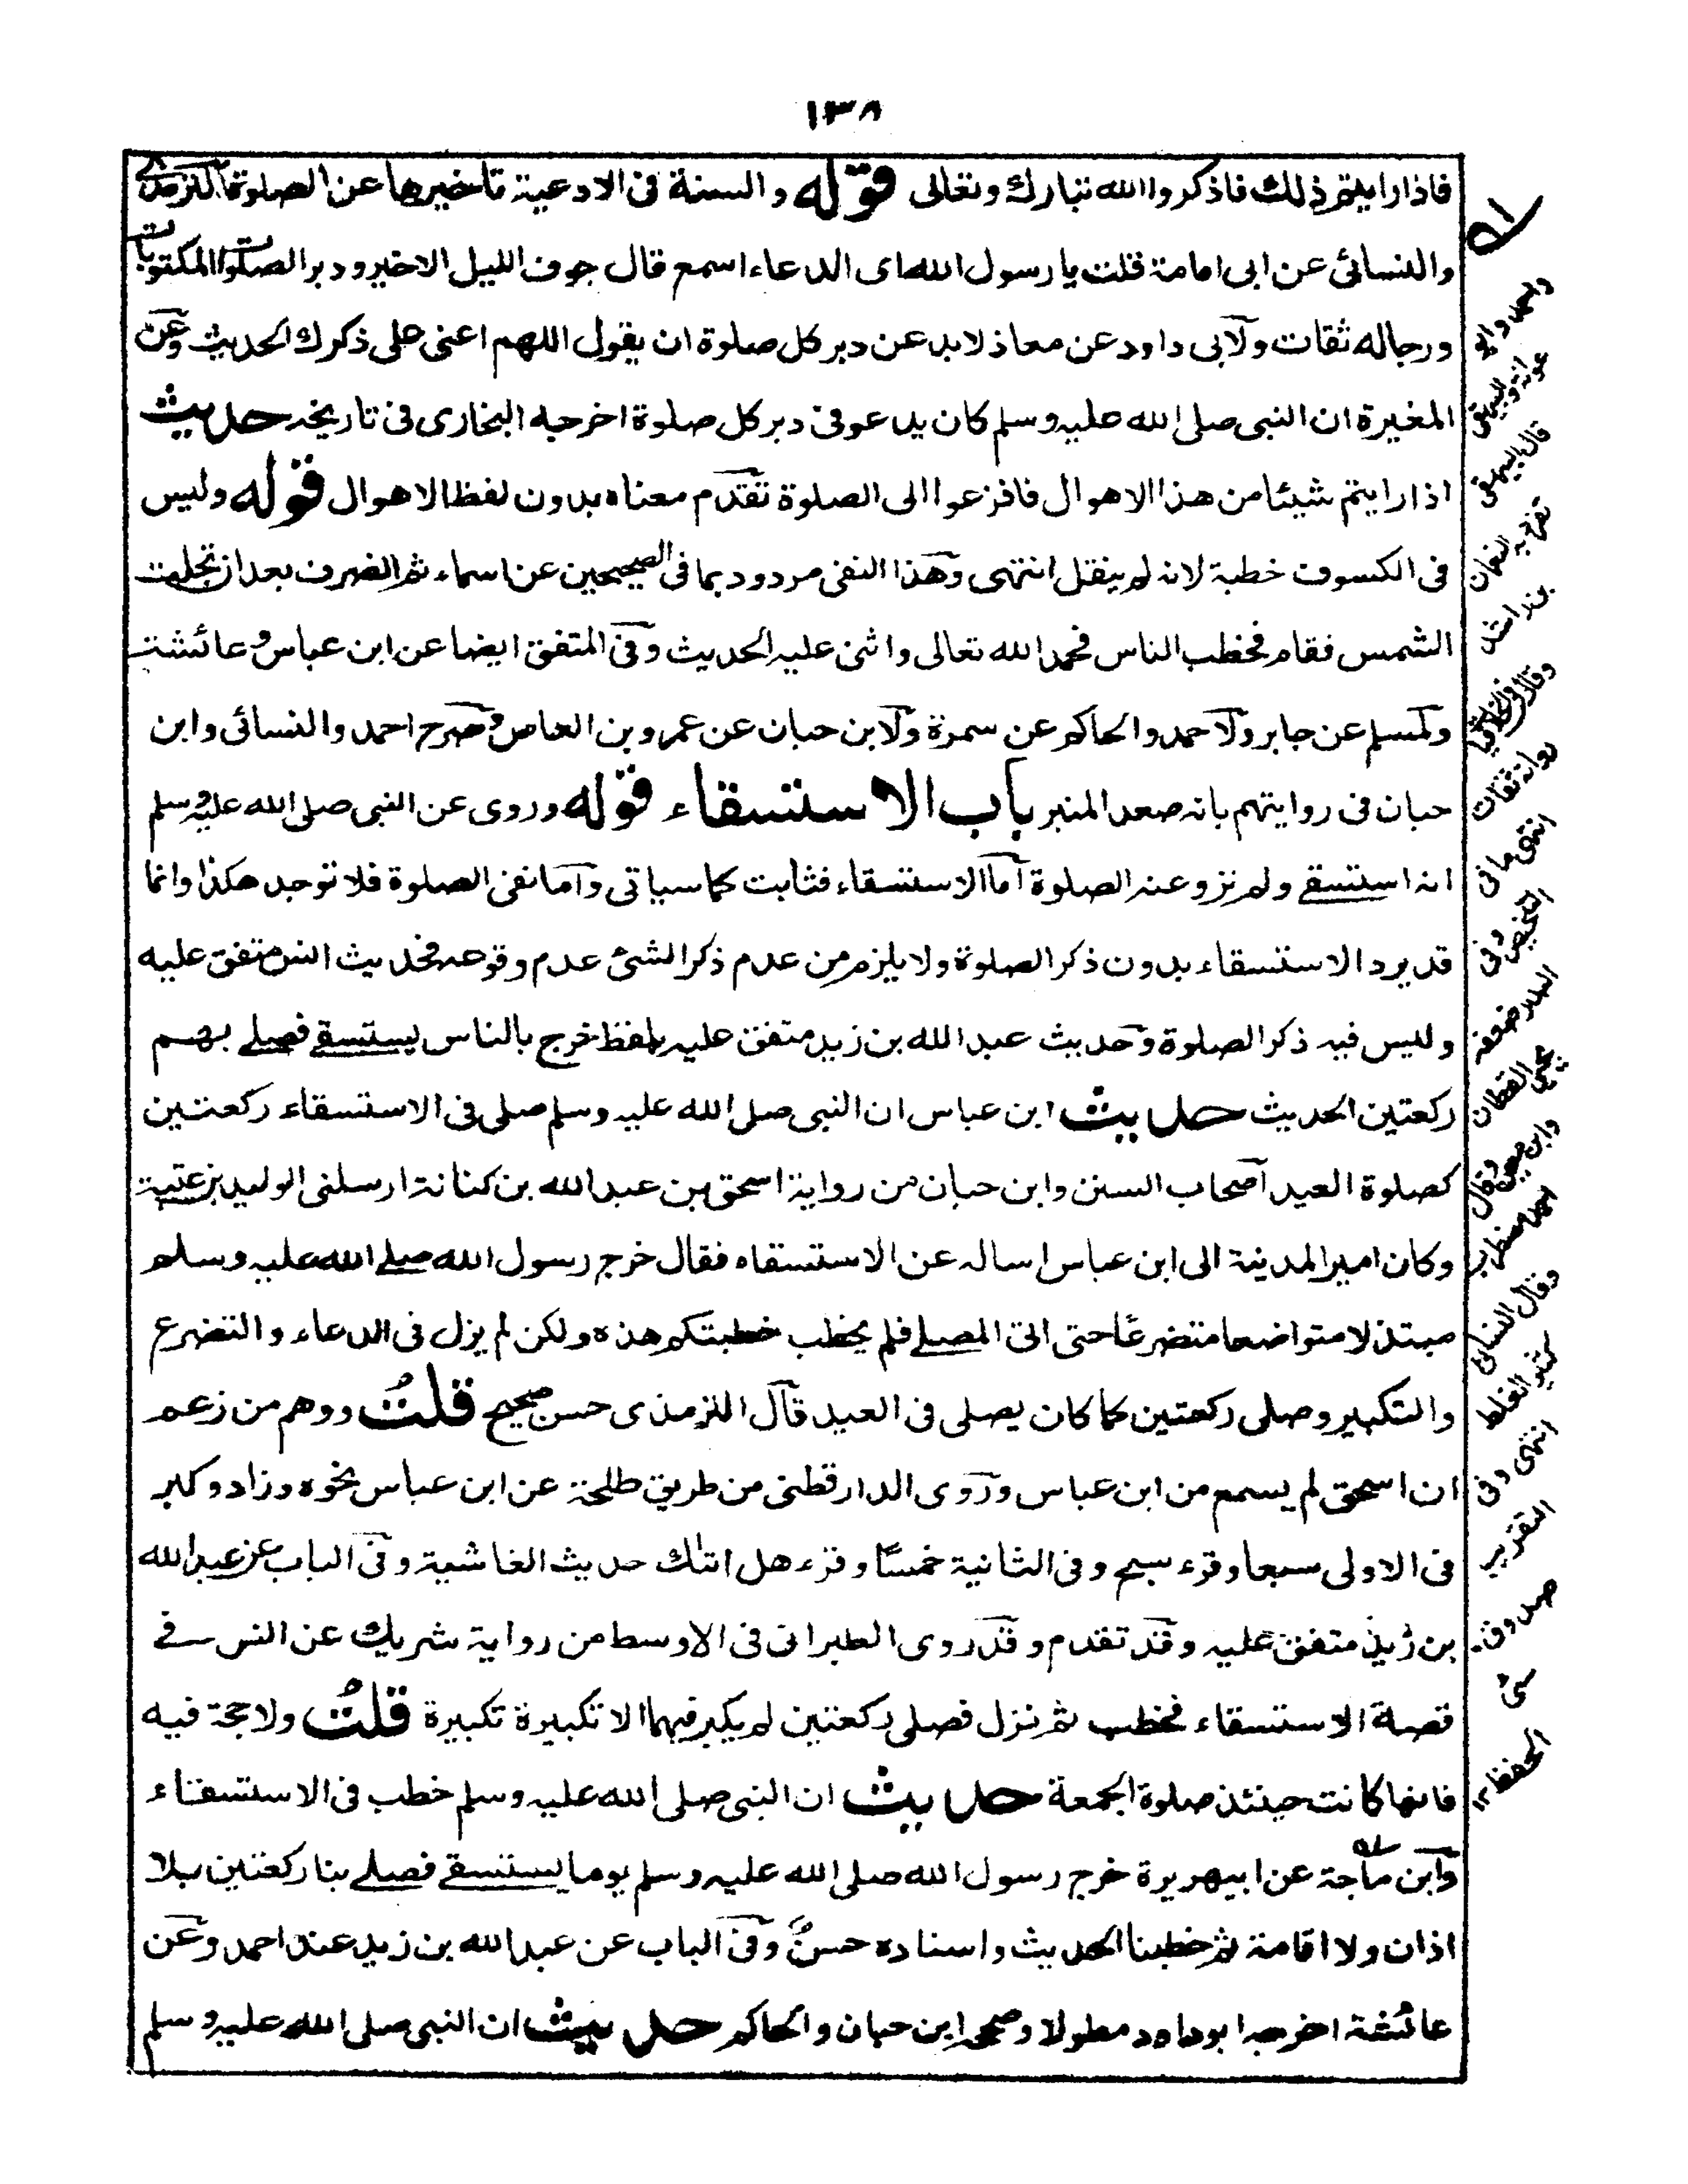 ١٣٨
فاذا رايتم ذلك فاذكروا الله تبارك وتعالى قوله والسنة فى الادعية تاخيرها عن الصلوة الترمذى
والنسائى عن ابى امامة قلت يا رسول الله اى الدعاء اسمع قال جوف الليل الاخير ودبر الصلوات المكتوبات
ورجاله ثقات ولابى داود عن معاذ لا بد عن دبر كل صلوة ان يقول اللهم اعنى على ذكرك الحديث وعن
المغيرة ان النبى صلى الله عليه وسلم كان يدعو فى دبر كل صلوة اخرجه البخارى فى تاريخه حديث
اذا رايتم شيئا من هذا الاهوال فافزعوا الى الصلوة تقدم معناه بدون لفظ الاهوال قوله وليس
فى الكسوف خطبة لانه لم ينقل انتهى وهذا النفى مردود بما فى الصحيحين عن اسماء ثم انصرف بعد ان تجلت
الشمس فقام فخطب الناس فحمد الله تعالى واثنى عليه الحديث وفى المتفق ايضا عن ابن عباس وعائشة
ولمسلم عن جابر ولاحمد والحاكم عن سمرة ولابن حبان عن عمرو بن العاص وصرح احمد والنسائى وابن
حبان فى روايتهم بانه صعد المنبر باب الاستسقاء قوله وروى عن النبى صلى الله عليه وسلم
انه استسقے ولم نزو عنه الصلوة اما الاستسقاء فثابت كما سياتى واما نفى الصلوة فلا توجد هكذا وانما
قد يرد الاستسقاء بدون ذكر الصلوة ولا يلزم من عدم ذكر الشئ عدم وقوعه فحديث انس متفق عليه
وليس فيه ذكر الصلوة وحديث عبد الله بن زيد متفق عليه بلفظ خرج بالناس يستسقے فصلے بهم
ركعتين الحديث حديث ابن عباس ان النبى صلى الله عليه وسلم صلى فى الاستسقاء ركعتين
كصلوة العيد اصحاب السنن وابن حبان من رواية اسحق بن عبد الله بن كنانة ارسلنى الوليد بن عتبة
وكان امير المدينة الى ابن عباس اساله عن الاستسقاه فقال خرج رسول الله صلے الله عليه وسلم
مبتذلا متواضعا متضرعًا حتى اتى المصلے فلم يخطب خطبتكم هذه ولكن لم يزل فى الدعاء والتضرع
والتكبير وصلى ركعتين كما كان يصلى فى العيد قال الترمذى حسن صحيح قلت ووهم من زعم
ان اسحق لم يسمع من ابن عباس وروى الدارقطنى من طريق طلحة عن ابن عباس نحوه وزاد وكبر
فى الاولى سبعا وقرء سبح وفى الثانية خمسًا وقرء هل اتٰك حديث الغاشية وفى الباب عن عبد الله
بن زيد متفق عليه وقد تقدم وقد روى الطبرانى فى الاوسط من رواية شريك عن انس فے
قصة الاستسقاء فخطب ثم نزل فصلى ركعتين لم يكبر فيهما الا تكبيرة تكبيرة قلت ولا حجة فيه
فانها كانت حينئذ صلوة الجمعة حديث ان النبى صلى الله عليه وسلم خطب فى الاستسقاء
وابن ماجة عن ابيهريرة خرج رسول الله صلى الله عليه وسلم يوما يستسقے فصلے بنا ركعتين بلا
اذان ولا اقامة ثم خطبنا الحديث واسناده حسن وفى الباب عن عبد الله بن زيد عند احمد وعن
عائشة اخرجه ابوداود مطولا وصححه ابن حبان والحاكم حديث ان النبى صلى الله عليه وسلم
واحمد وابو
عوانة والبيهقى
قال البيهقى
تفرد به النعمان
بن راشد
وقال فى الخلافيات
رواته ثقات
انتهى ما فى
التلخيص وفى
البدر ضعفه
يحيى القطان
وابن معين وقال
احمد مضطرب
وقال النسائى
كثير الغلط
انتهى وفى
التقريب
صدوق
سئ
الحفظ ١٢